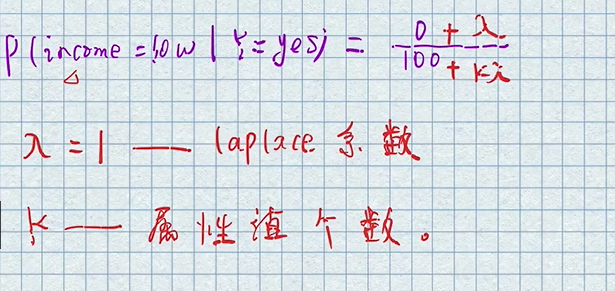 P(income = low | Y = yes) = (0 + λ) / (100 + Kλ)
λ = 1 —— laplace 系数
K —— 属性值个数。